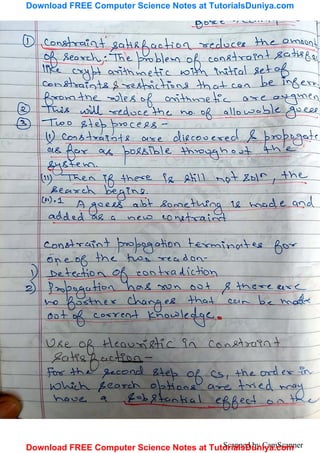 Download FREE Computer Science Notes at TutorialsDuniya.com
① Constraint satisfaction reduces the amount
of search. The problem of constraint satisfac
like crypt arithmetic with initial set of
constraints & restrictions that can be inferr
from the rules of arithmetic are augmen
② This will reduce the no. of allowable guess
③ Two step process -
(i) Constraints are discovered & propogate
as far as possible throughout the
system.
(ii) Then if there is still not soln, the
search begins.
(ii).1 A guess abt something is made and
added as a new constraint
Constraint propogation terminates for
one of the two reason-
1) Detection of contradiction
2) Propogation has run out & there are
no further changes that can be made
out of current knowledge.
Use of Heauristic in Constraint
Satisfaction -
For the second step of CS, the order in
which search options are tried may
have a substantial effect on the
Scanned by CamScanner
Download FREE Computer Science Notes at TutorialsDuniya.com